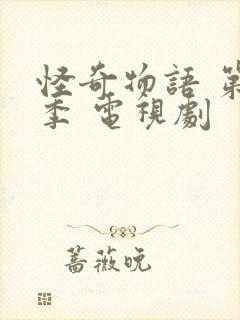 怪奇物語 第
季 電視劇
薔薇晚